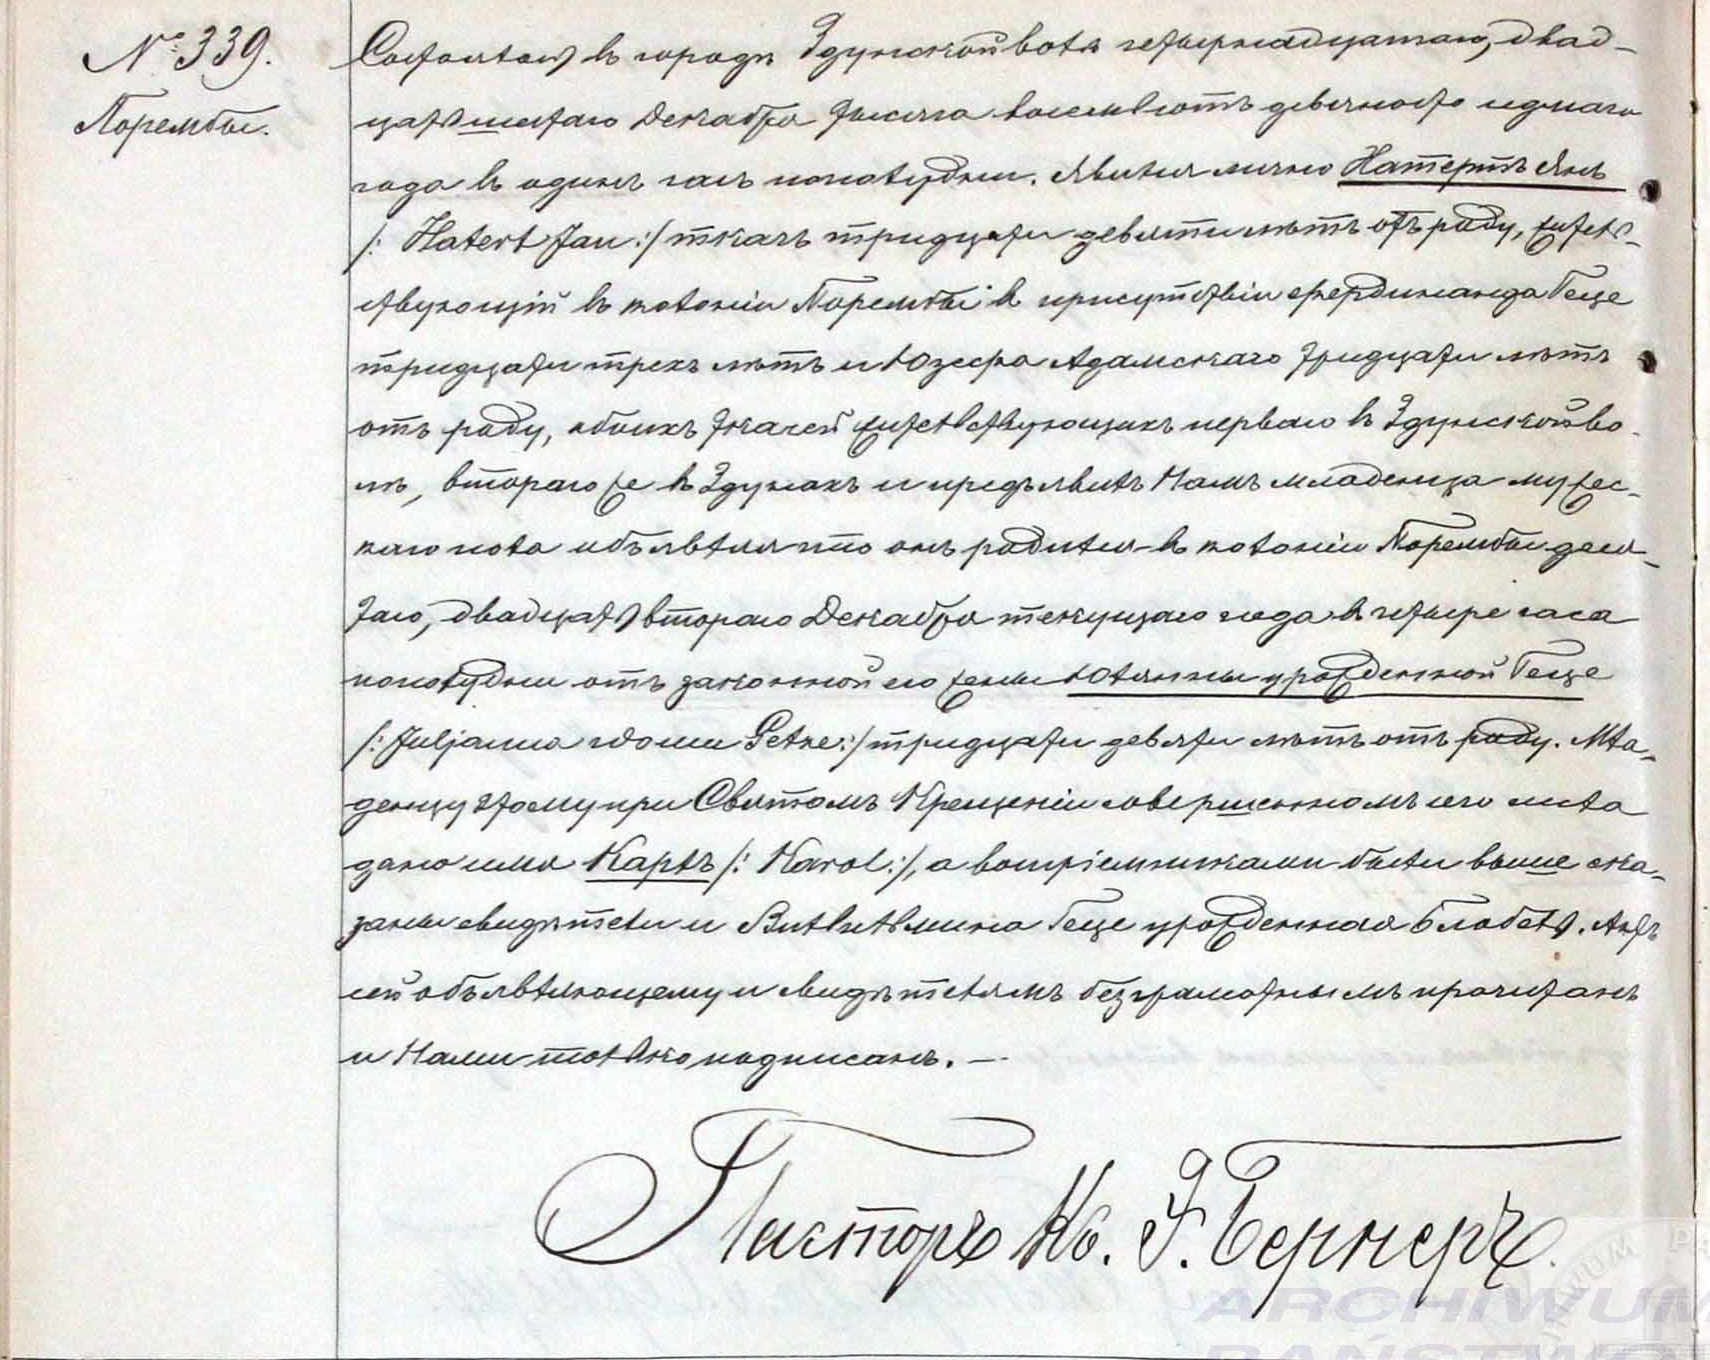 № 339.
Порембы.
Состоялось въ городѣ Здунской воля четырнадцатаго, двад-
цать шестаго Декабря тысяча восемьсотъ девяносто однаго
года въ одинъ часъ пополудни. Явился лично Натертъ Янъ
/: Natert Jan :/ ткачъ тридцати девяти лѣтъ отъ роду, житель-
ствующій въ колоніи Порембы въ присутствіи Фердинанда Геце
тридцати трехъ лѣтъ и Юзефа Адамскаго тридцати лѣтъ
отъ роду, обоихъ ткачей жительствующихъ перваго въ Здунской во-
лѣ, втораго же въ Здунахъ и предъявилъ Намъ младенца мужес-
каго пола объявляя что онъ родился въ колоніи Порембы деся-
таго, двадцать втораго Декабря текущаго года въ четыре часа
пополудни отъ законной его жены Юлянны урожденной Геце
/: Juljanna z domu Getze :/ тридцати девяти лѣтъ отъ роду. Мла-
денцу этому при Святомъ Крещеніи совершенномъ сего числа
дано имя Карлъ /: Karol :/, а воспріемниками были выше ска-
заны свидѣтели и Вильгельмина Геце урожденная Блобель. Актъ
сей объявляющему и свидѣтелямъ безграмотнымъ прочитанъ
и Нами только подписанъ. —
Пасторъ Кс. Э. Бернеръ.
ARCHIWUM
PAŃSTW